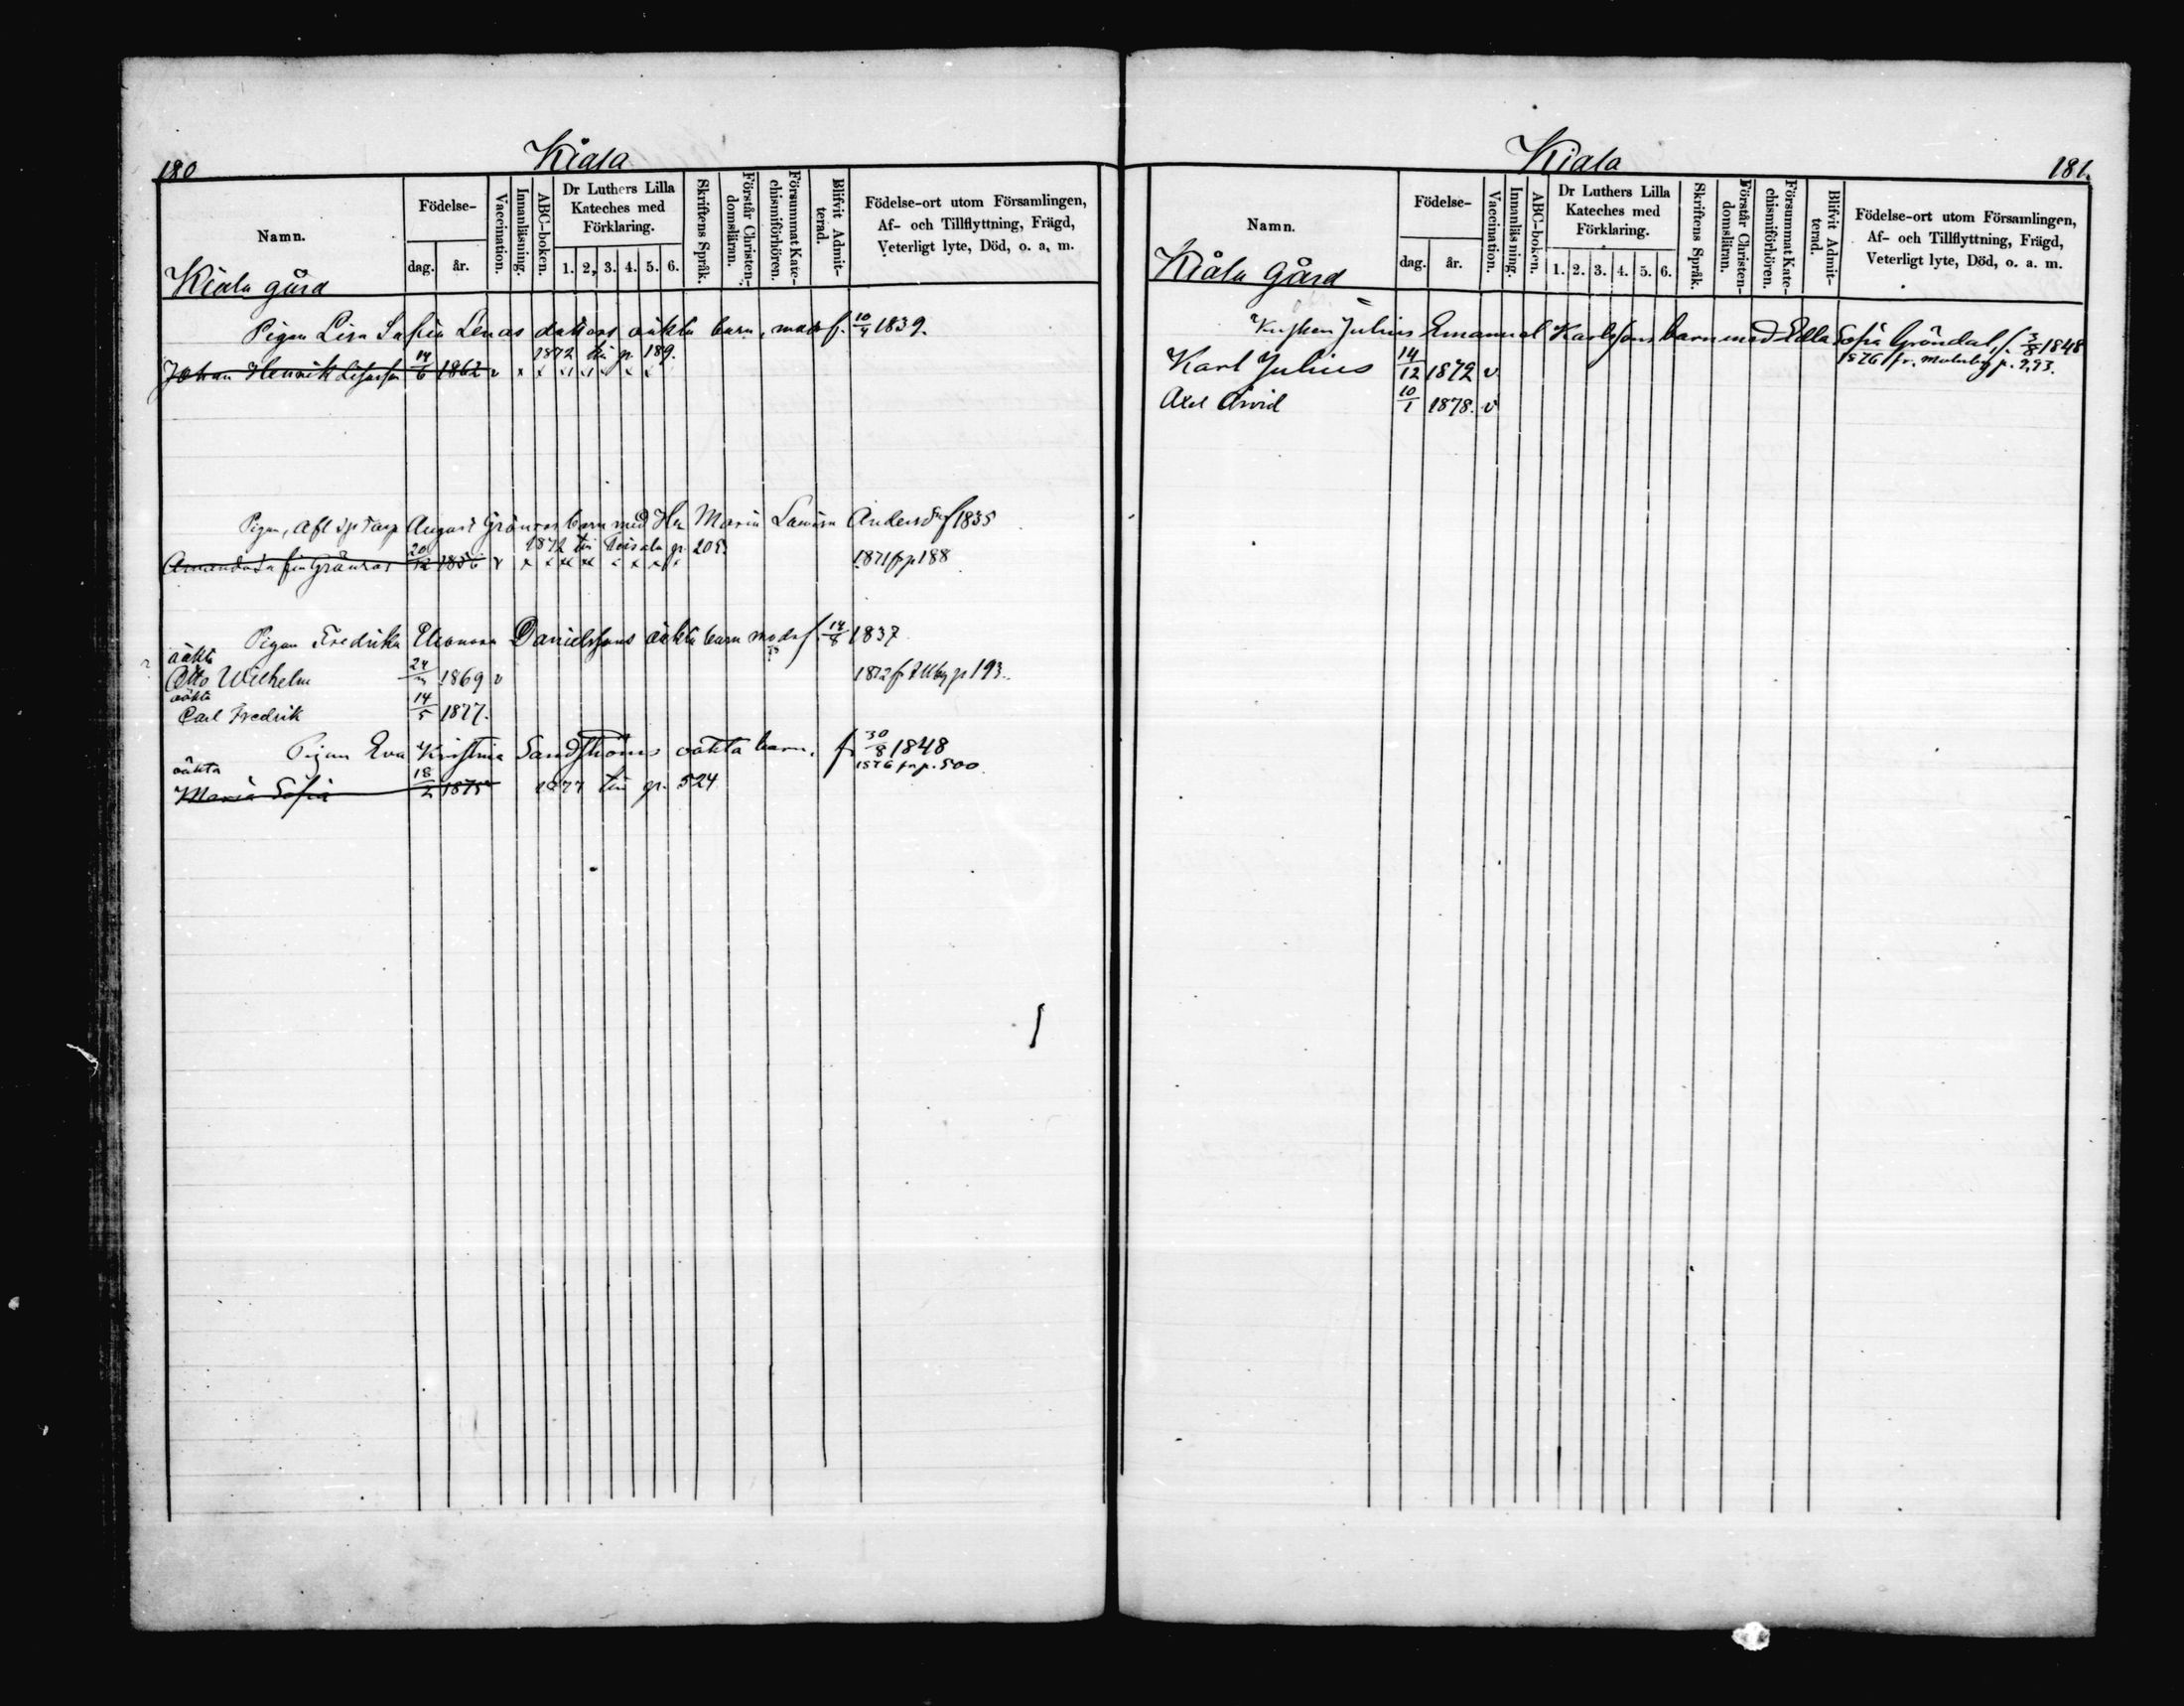 180
Kiala
Namn.
Födelse-
dag.
år.
Vaccination.
Innanläsning.
ABC-boken.
Dr Luthers Lilla
Kateches med
Förklaring.
1. 2, 3. 4. 5. 6.
Skriftens Språk.
Förstår Christen-
domsläran.
Försummat Kate-
chismiförhören.
Blifvit Admit-
terad.
Födelse-ort utom Församlingen,
Af- och Tillflyttning, Frägd,
Veterligt lyte, Död, o. a. m.
Kiala gård
Pigan Lisa Sofia Lenas dotters oäkta barn, modr f. 10/4 1839.
1872 till p. 189.
Johan Henrik 14/6 1862 v x x x x x x x
Pigan, August Gränros barn med Hu Maria Lovisa Andersd f 1835
1872 till p. 205
Amanda Sofia Gränros 20/12 1856 v x x x x x x x x 1871 fr p 188
Pigan Fredrika Eleonora Danielssons oäkta barn modr f. 14/8 1837
oäkta
Otto Wilhelm 24 1869 v 1872 fr p 193.
oäkta
Carl Fredrik 14/5 1877.
Pigan Eva Kristina Sandströms oäkta barn. f. 30/8 1848
1876 fr p. 500
oäkta
Maria Sofia 18/2 1875 1877 till p. 524
Kiala
181.
Namn.
Födelse-
dag.
år.
Vaccination.
Innanläsning.
ABC-boken.
Dr Luthers Lilla
Kateches med
Förklaring.
1. 2. 3. 4. 5. 6.
Skriftens Språk.
Förstår Christen-
domsläran.
Försummat Kate-
chismiförhören.
Blifvit Admit-
terad.
Födelse-ort utom Församlingen,
Af- och Tillflyttning, Frägd,
Veterligt lyte, Död, o. a. m.
Kiala Gård
Kusken Julius Emanuel Karlssons barn med Edla Sofia Gröndal, f. 3/8 1848
1876 fr. p. 293.
Karl Julius 14/12 1872 v
Axel Arvid 10/1 1878. v